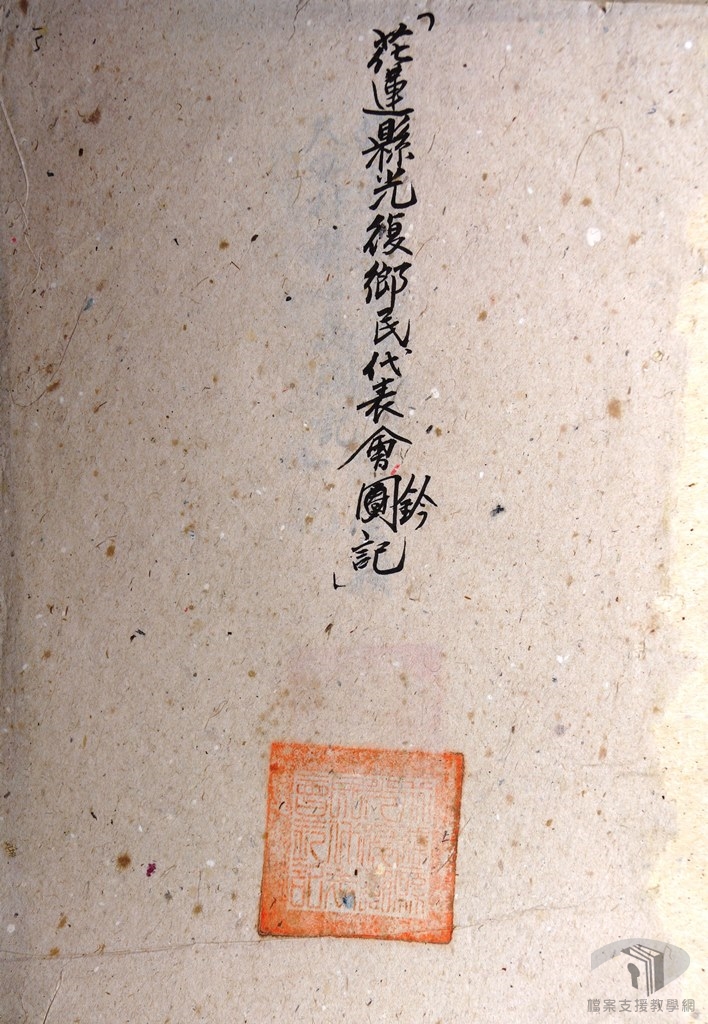 「花蓮縣光復鄉民代表會圖記」
鈐
檔案支援教學網